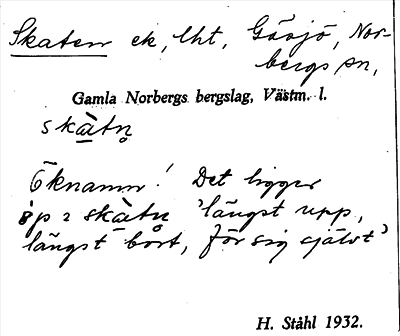 Skaten ek, lht, Gäsjö, Nor-
bergs sn,
Gamla Norbergs bergslag, Västm. l.
skàtn̥
Öknamn! Det ligger
på skàtn̥ 'längst upp,
längst bort, för sig självt'
H. Ståhl 1932.